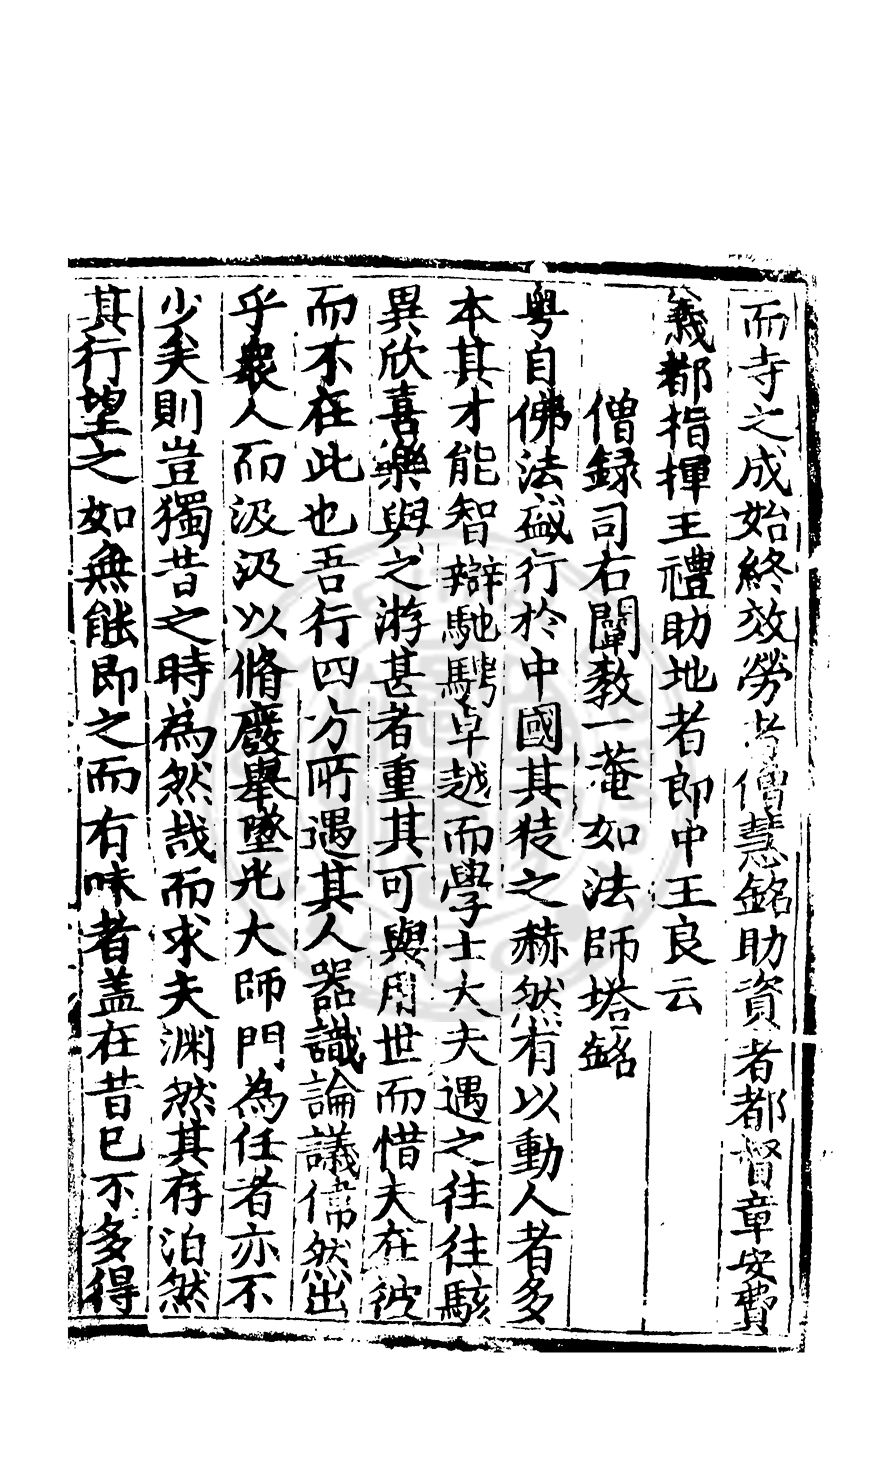 而寺之成始終效勞者僧慧銘助資者都督章安費
義都指揮王禮助地者郎中王良云
僧録司右闡教一菴如法師塔銘
粤自佛法盛行於中國其徒之赫然有以動人者多
本其才能智辯馳騁卓越而學士大夫遇之往往駭
異欣喜樂與之游甚者重其可與用世而惜夫在彼
而不在此也吾行四方所遇其人器識論議偉然出
乎衆人而汲汲以脩廢舉墜光大師門為任者亦不
少矣則豈獨昔之時為然哉而求夫渊然其存泊然
其行望之如無能即之而有味者盖在昔已不多得